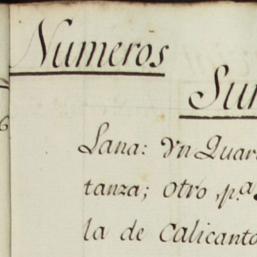 Numeros
Sum
Lana: Vn Quar
tanza; otro, p.a
la de Calicanto